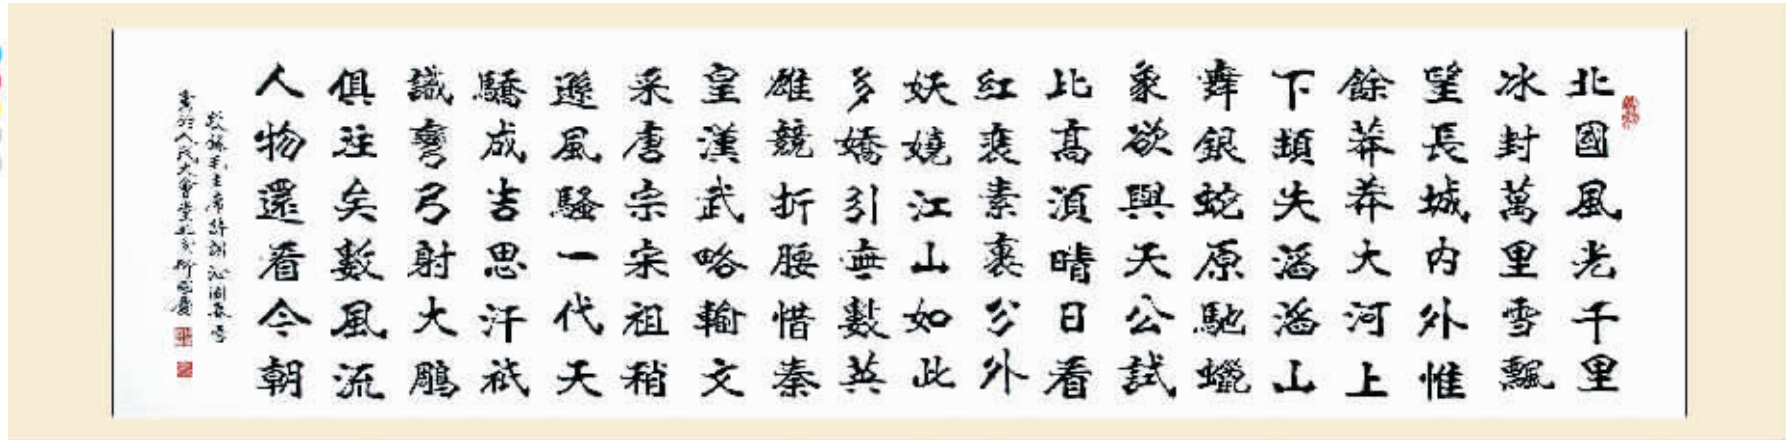 北國風光千里
冰封萬里雪飄
望長城內外惟
餘莽莽大河上
下頓失滔滔山
舞銀蛇原馳蠟
象欲與天公試
比高須晴日看
紅裹素裹分外
妖嬈江山如此
多嬌引無數英
雄競折腰惜秦
皇漢武略輸文
采唐宗宋祖稍
遜風騷一代天
驕成吉思汗祇
識彎弓射大鵰
俱往矣數風流
人物還看今朝
敬錄毛主席詩詞沁園春雪
書於人民大會堂